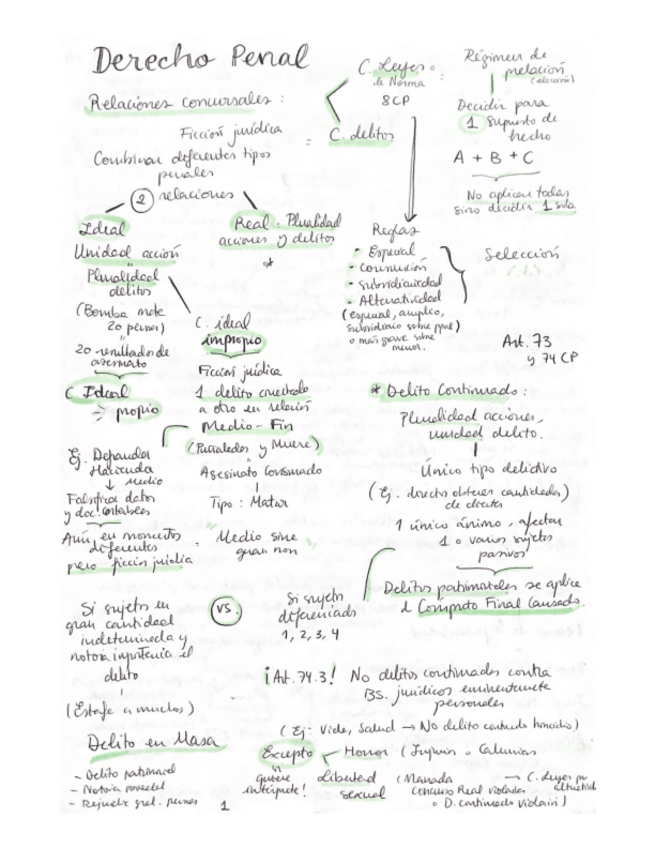 Derecho Penal
Relaciones concursales :
Ficción jurídica
Combinar diferentes tipos
penales
2 relaciones
=
C. Leyes o
de Norma
8CP
C. delitos
:
Régimen de
prelación
(elección)
Decidir para
1 supuesto de
hecho
A + B + C
No aplican todas
sino decidir 1 sola
Ideal
Unidad acción
"
Pluralidad
delitos
(Bomba mata
20 persnas)
"
20 resultados de
asesinato
C. Ideal
→ propio
Real : Pluralidad
acciones y delitos
*
C. ideal
impropio
Ficción jurídica
1 delito conectado
a otro en relación
Medio - Fin
(Puñaladas y Muere)
Asesinato Consumado
Tipo : Matar
Medio sine
qua non
Ej. Defraudar
Hacienda
↓ Medio
Falsificar datos
y doc. contables
Aún en momentos
diferentes
pero ficción jurídica
Reglas
- Especial
- Consunción
- Subsidiariedad
- Alternatividad
(especial, amplio,
subsidiario sobre ppal)
o más grave sobre
menor.
Selección
Art. 73
y 74 CP
* Delito Continuado :
Pluralidad acciones,
unidad delito.
Único tipo delictivo
(Ej. directo obtener cantidades)
1 único ánimo, afectar
1 o varios sujetos
pasivos
Delitos patrimoniales se aplica
el Computo Final Causado.
Si sujeto en
gran cantidad
indeterminada y
notoria
delito
(Estafa a muchos)
Delito en Masa
- Delito patrimonial
- Notoria
- gral. persnas
VS.
Si sujeto
diferenciados
1, 2, 3, 4
¡Art. 74.3! No delitos continuados contra
Bs. jurídicos eminentemente
personales
(Ej: Vida, Salud → No delito continuado homicidio)
Excepto
Honor (Injurias o Calumnias
quiere
intérprete!
Libertad
sexual
(Manada
Concurso Real
o D. continuado violación)
→ C. Leyes por
1